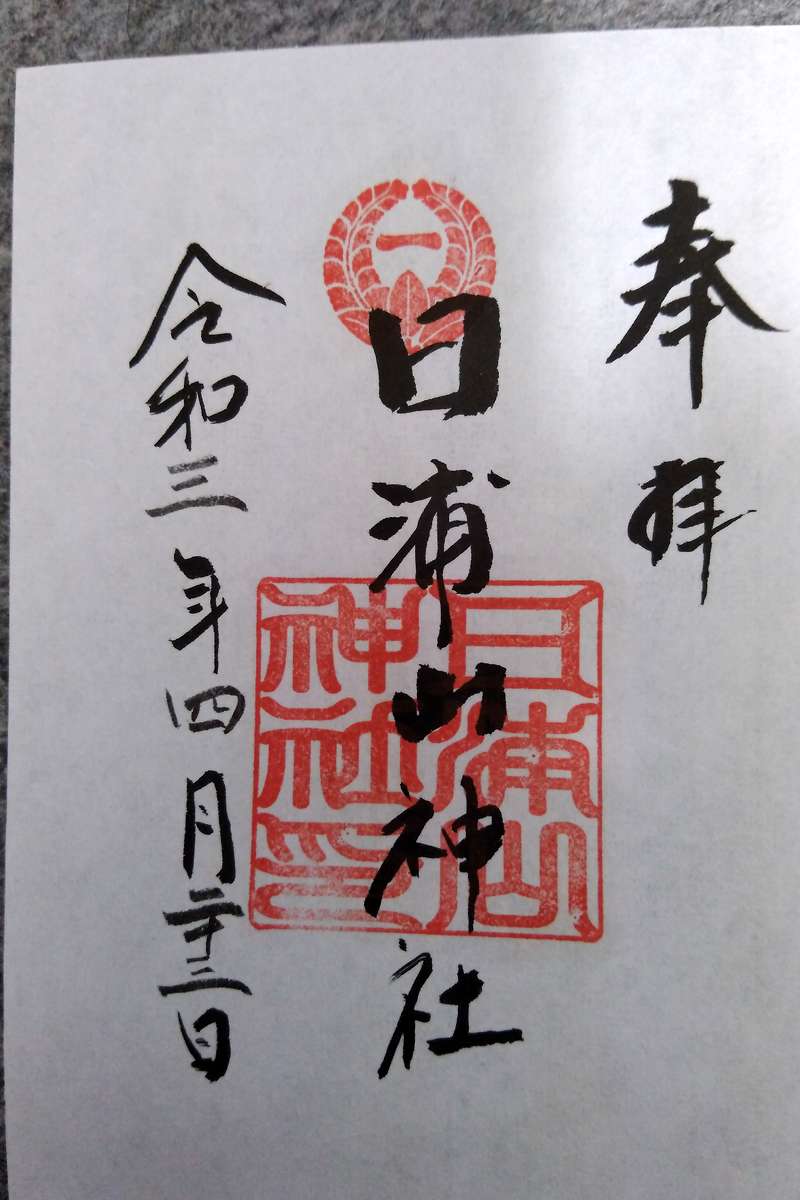 奉拝
一
日浦山神社
日浦山
神社印
令和三年四月二十三日